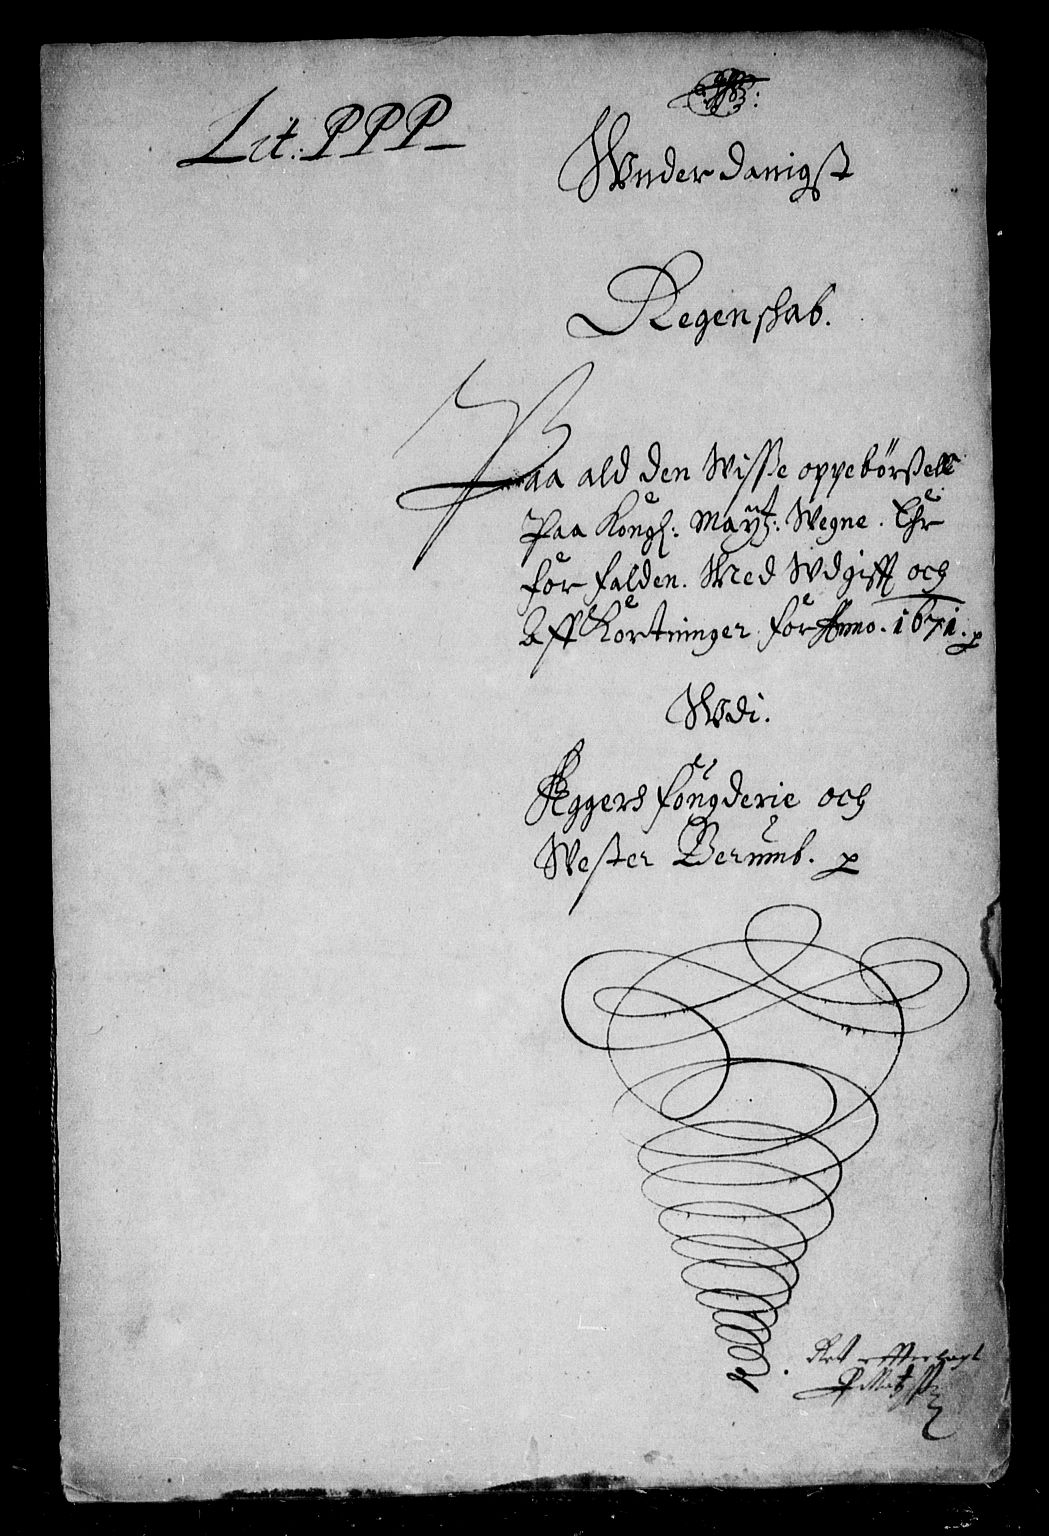 Lit: PPP
Wnderdanigst
Regenschab.
Paa ald den Wisse oppebørsell
Paa Kongl: Maytz: Wegne. Ehr
för falden. Med Wdgifft och
Aff Kortninger för Anno. 1671. p
Wdi.
Aggers fougderie och
Wester Berumb. p